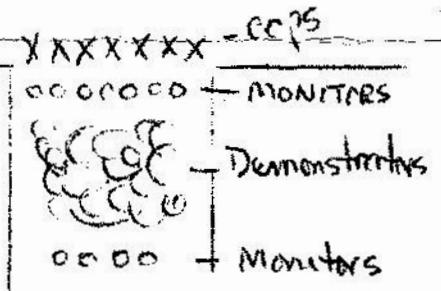 XXXXXXX - COPS
OOOOOOO - MONITORS
Demonstrators
OOOO - Monitors